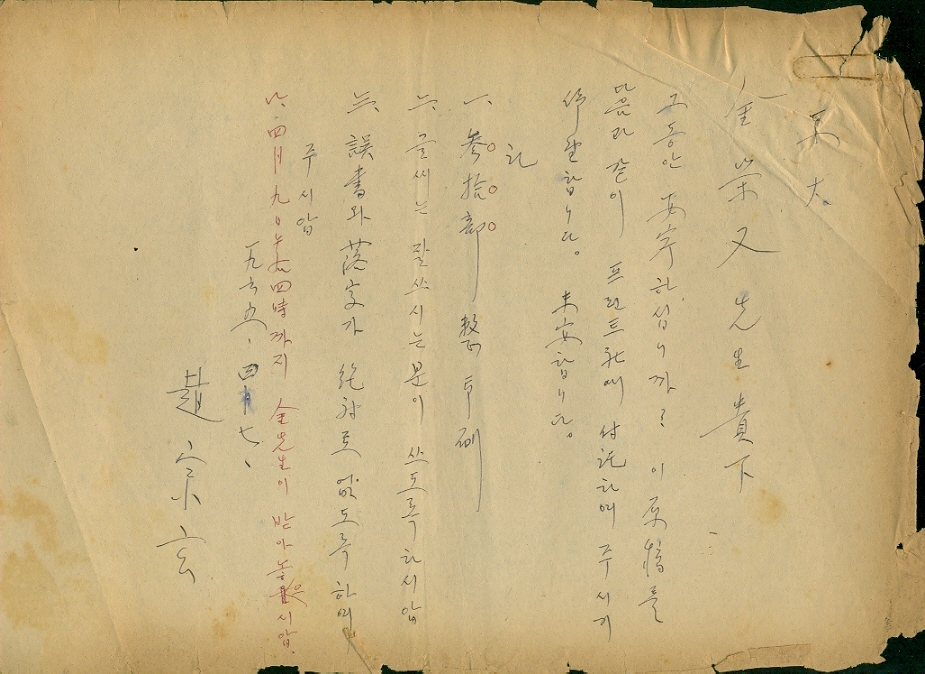 東大。
金榮又 先生 貴下
그동안 安寧하십니까? 이 原稿를
다음과 같이 프린트社에 付託하여 주시기
仰望합니다. 未安합니다.
記
一、參拾部
二、글씨는 잘 쓰시는 분이 쓰도록 하시압
三、誤書와 落字가 絶對로 없도록 하여
주시압
四月九日午后四時까지 金先生이 받아놓으시압.
一九六五、四月七、
趙宗玄